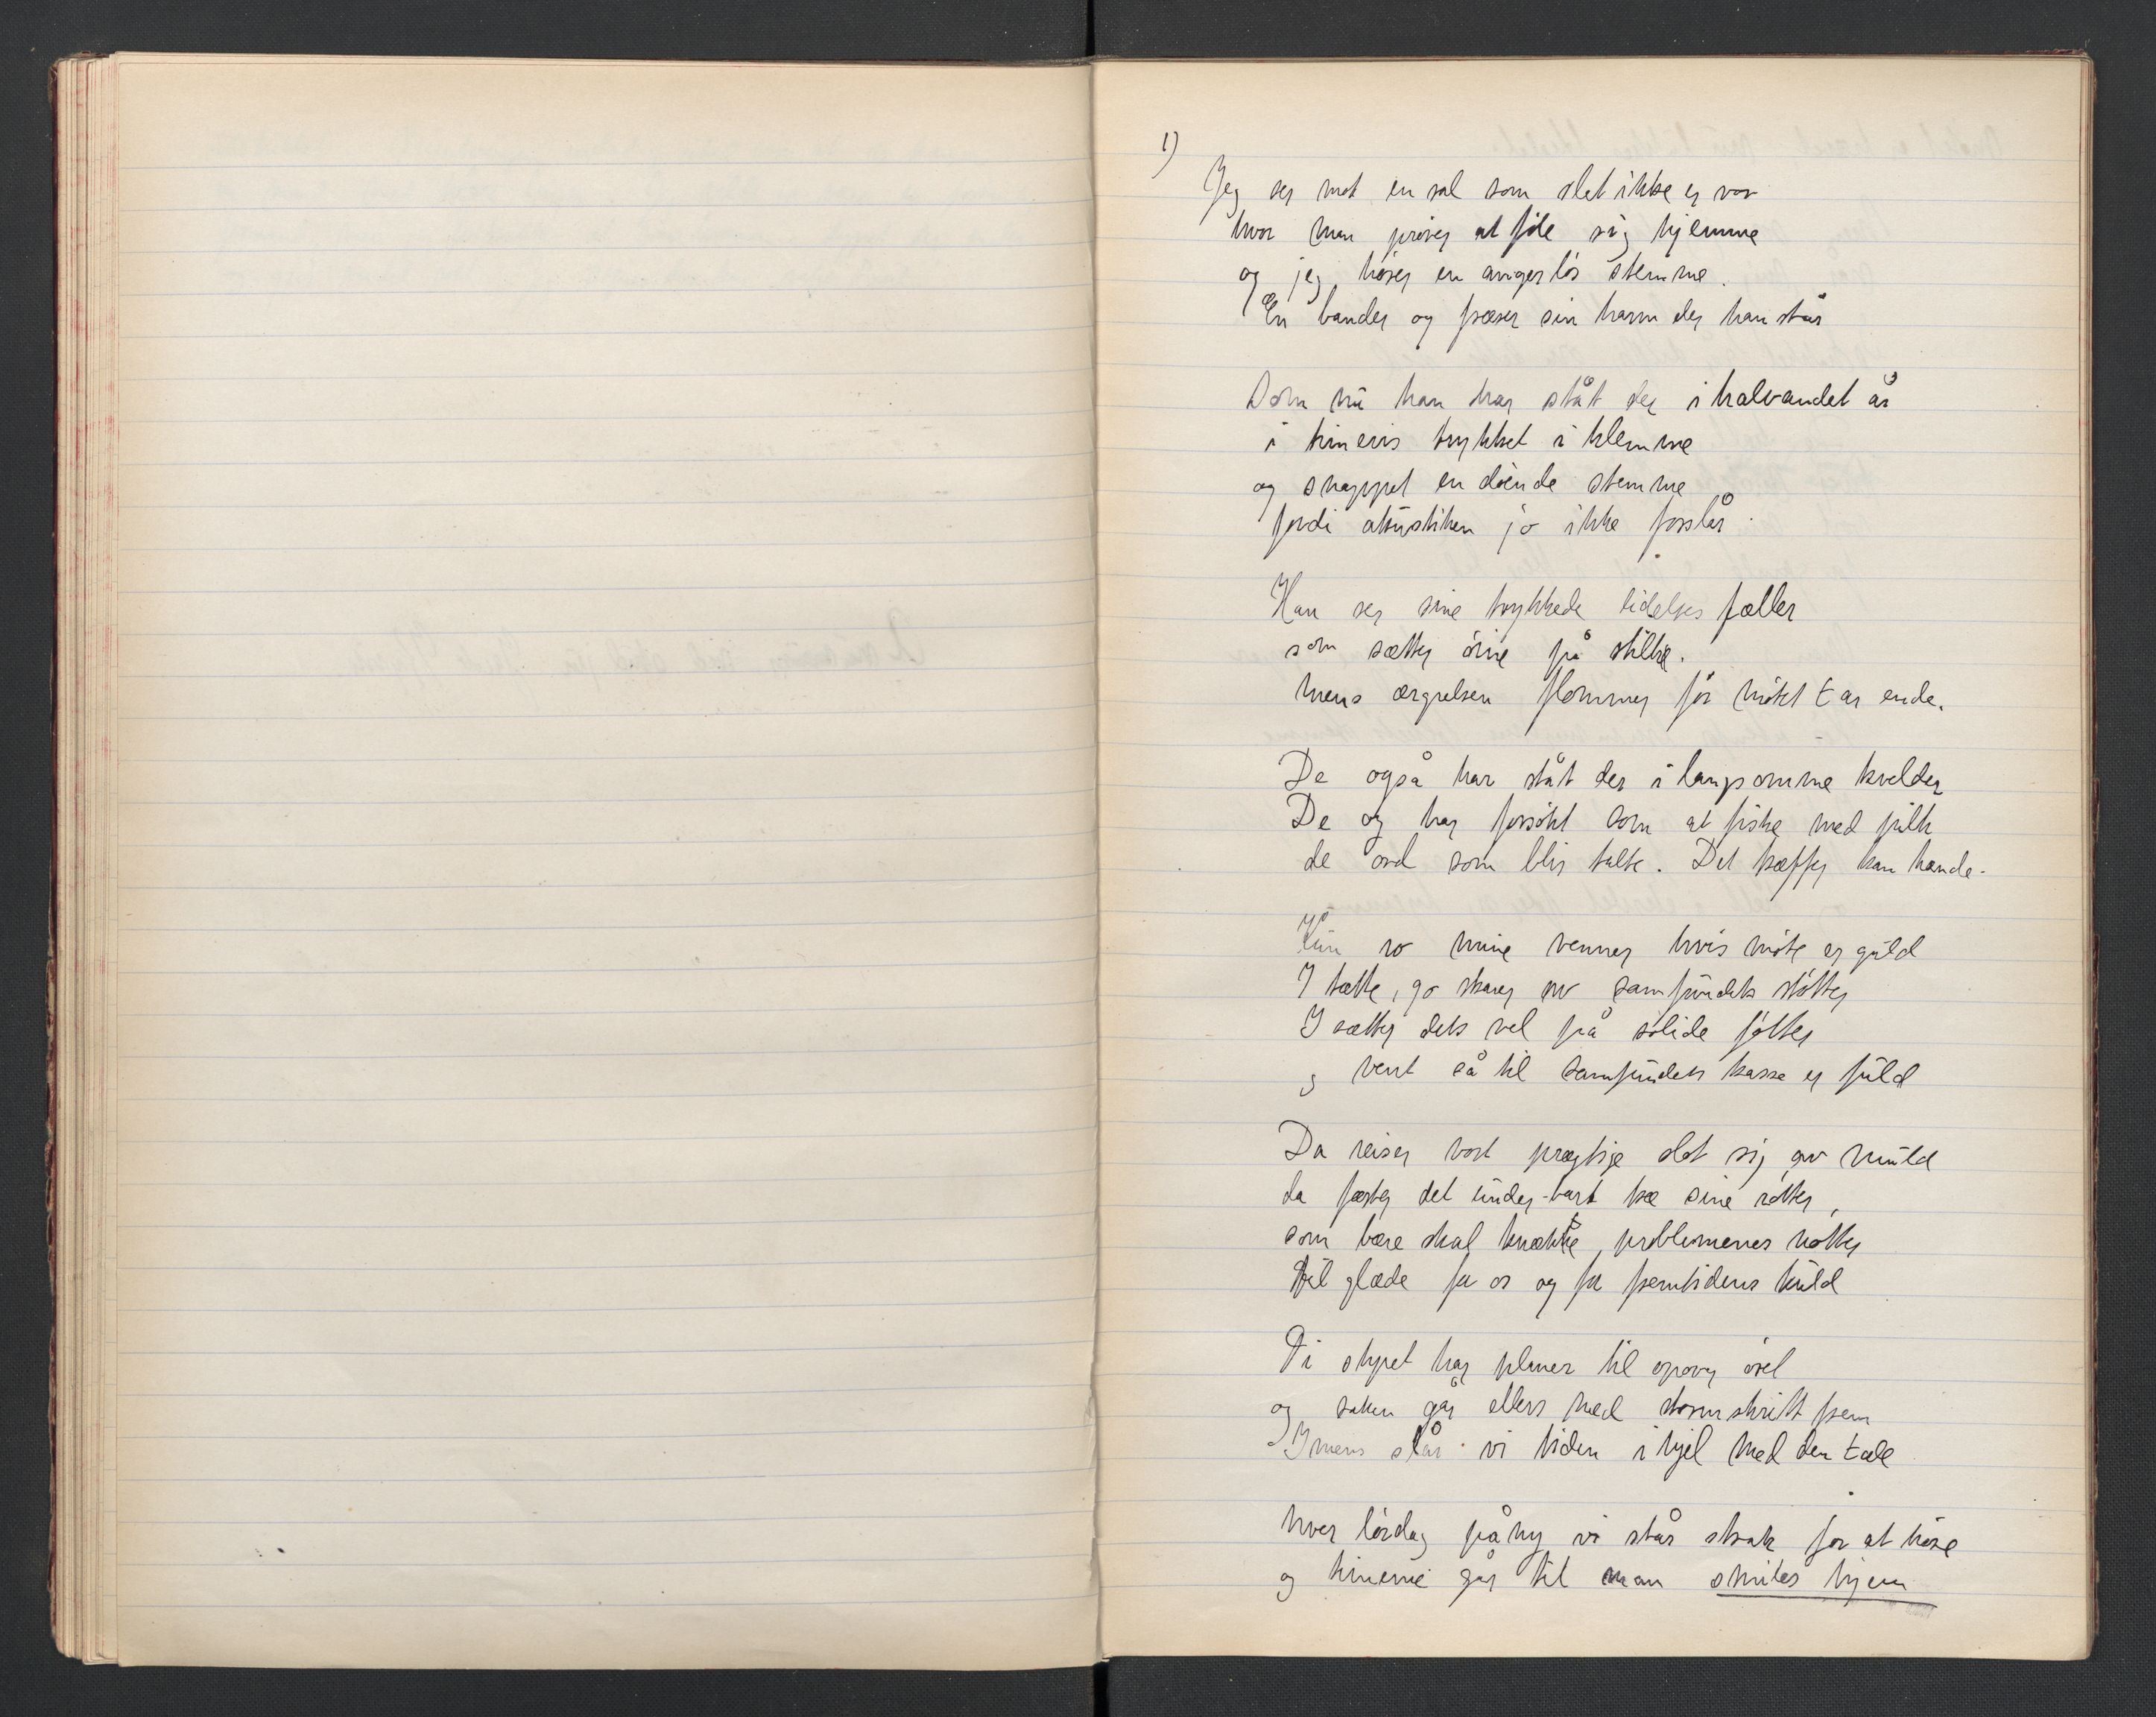 1)
Jeg ser mot en sal som slet ikke er vor
hvor man prøver at føle sig hjemme
og jeg hører en angerløs stemme.
En bander og fræser sin harm der han står
Som nu han har ståt der i halvandet år
i timevis trykket i klemme
og snappet en døende stemme
fordi akustiken jo ikke forslår.
Han ser sine trykkede lidelses fæller
som sætter øine på stilke.
Mens ærgrelsen flommer før møtet tar ende.
De også har ståt der i langsomme kvelder
De og har forsøkt som at fiske med pilk
de ord som blir talte. Det træffer kan hænde.
Kun ro mine venner hvis møte er guld
I tætte, go skarer av samfundets støtter
I sætter dets vel på solide føtter
og vent så til samfundets kasse er fuld
Da reiser vort prægtige slot sig av muld
da fæster det underbart træ sine røtter,
som bare skal knække problemenes nøtter
til glæde for os og for fremtidens kuld
Ti styret har planer til
og saken går ellers med stormskritt frem
Imens slår vi tiden ihjel med den tale
hver lørdag påny vi står strak for at høre
og timerne går til man smiles hjem